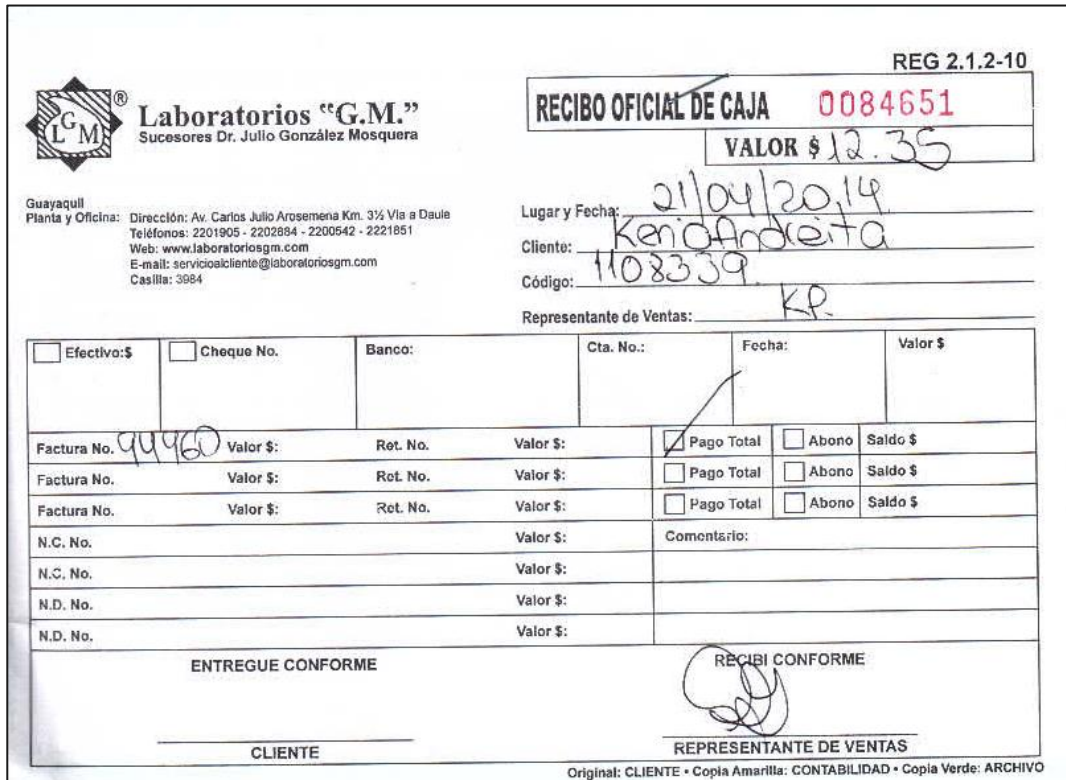 REG 2.1.2-10
LGM ®
Laboratorios “G.M.”
Sucesores Dr. Julio González Mosquera
RECIBO OFICIAL DE CAJA 0084651
VALOR $ 12.35
Guayaquil
Planta y Oficina: Dirección: Av. Carlos Julio Arosemena Km. 3½ Vía a Daule
Teléfonos: 2201905 - 2202884 - 2200542 - 2221851
Web: www.laboratoriosgm.com
E-mail: servicioalcliente@laboratoriosgm.com
Casilla: 3984
Lugar y Fecha: 21/04/20,14
Cliente: Kenia Andreita
Código: 1108339
Representante de Ventas: K.P.
Efectivo:$ Cheque No. Banco: Cta. No.: Fecha: Valor $
Factura No. 94460 Valor $: Ret. No. Valor $: Pago Total Abono Saldo $
Factura No. Valor $: Ret. No. Valor $: Pago Total Abono Saldo $
Factura No. Valor $: Ret. No. Valor $: Pago Total Abono Saldo $
N.C. No. Valor $: Comentario:
N.C. No. Valor $:
N.D. No. Valor $:
N.D. No. Valor $:
ENTREGUE CONFORME RECIBI CONFORME
CLIENTE REPRESENTANTE DE VENTAS
Original: CLIENTE • Copia Amarilla: CONTABILIDAD • Copia Verde: ARCHIVO